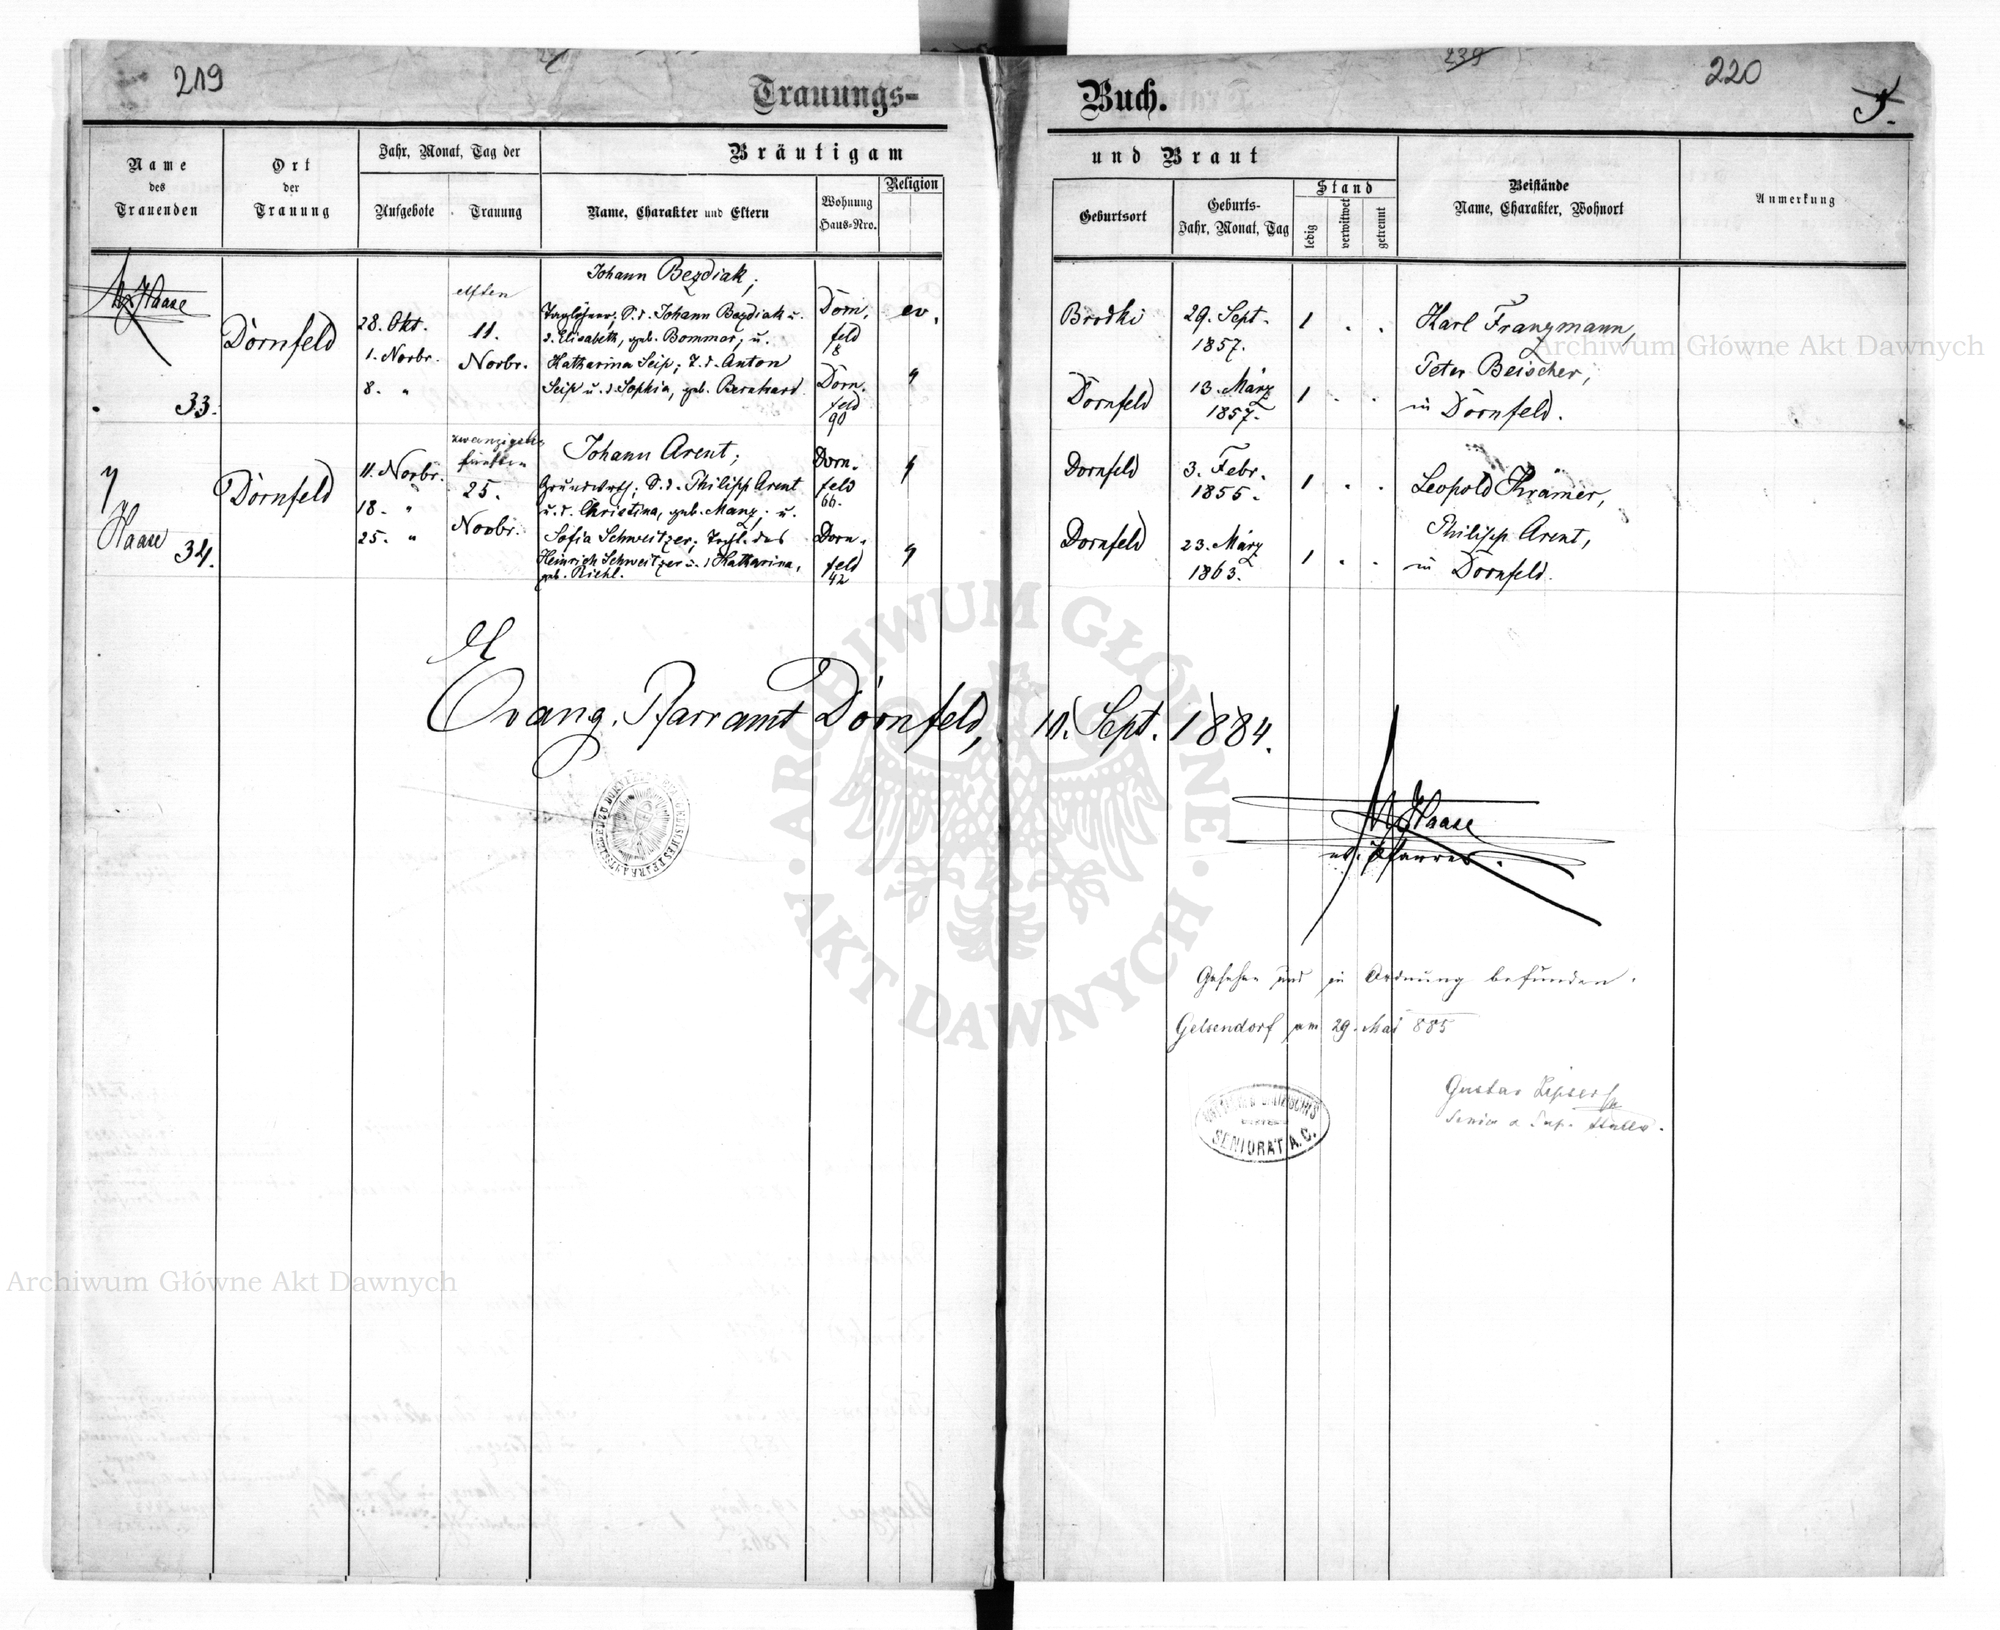 219
220
239
5.
Trauungs-
Buch.
Name
des
Trauenden
Ort
der
Trauung
Jahr, Monat, Tag der
Aufgebote
Trauung
Bräutigam
Name, Charakter und Eltern
Wohnung
Haus-Nro.
Religion
und Braut
Geburtsort
Geburts-
Jahr, Monat, Tag
Stand
ledig
verwittwet
getrennt
Beistände
Name, Charakter, Wohnort
Anmerkung
Haase
33.
Dornfeld
28. Okt.
1. Novbr.
8. "
elften
11.
Novbr.
Johann Bezdiak,
Taglöhner, S. d. Johann Bezdiak u.
d. Elisabeth, geb. Bommer, u.
Katharina Seip, T. d. Anton
Seip u. d. Sophia, geb. Bernhard.
Dorn-
feld
8
Dorn-
feld
90
ev.
"
Brodki
29. Sept.
1857.
1 . .
Dornfeld
13. März
1857.
1 . .
Karl Franzmann,
Peter Beischer,
in Dornfeld.
"
Haase
34.
Dornfeld
11. Novbr.
18. "
25. "
25.
Novbr.
Johann Arent,
Grundwrth, S. d. Philipp Arent
u. d. Christina, geb. Manz, u.
Sofia Schweitzer, Tcht. des
Heinrich Schweitzer u. d. Katharina,
geb. Riehl.
Dorn-
feld
66.
Dorn-
feld
42
"
"
Dornfeld
3. Febr.
1855.
1 . .
Dornfeld
23. März
1863.
1 . .
Leopold Krämer,
Philipp Arent,
in Dornfeld.
Evang. Pfarramt Dornfeld, 10. Sept. 1884.
Haase
ev. Pfarrer.
Gesehen und in Ordnung befunden.
Gelsendorf am 29. Mai 885
Gustav Lipser
SENIORAT A. C.
Archiwum Główne Akt Dawnych
Archiwum Główne Akt Dawnych
ARCHIWUM GŁÓWNE
AKT DAWNYCH